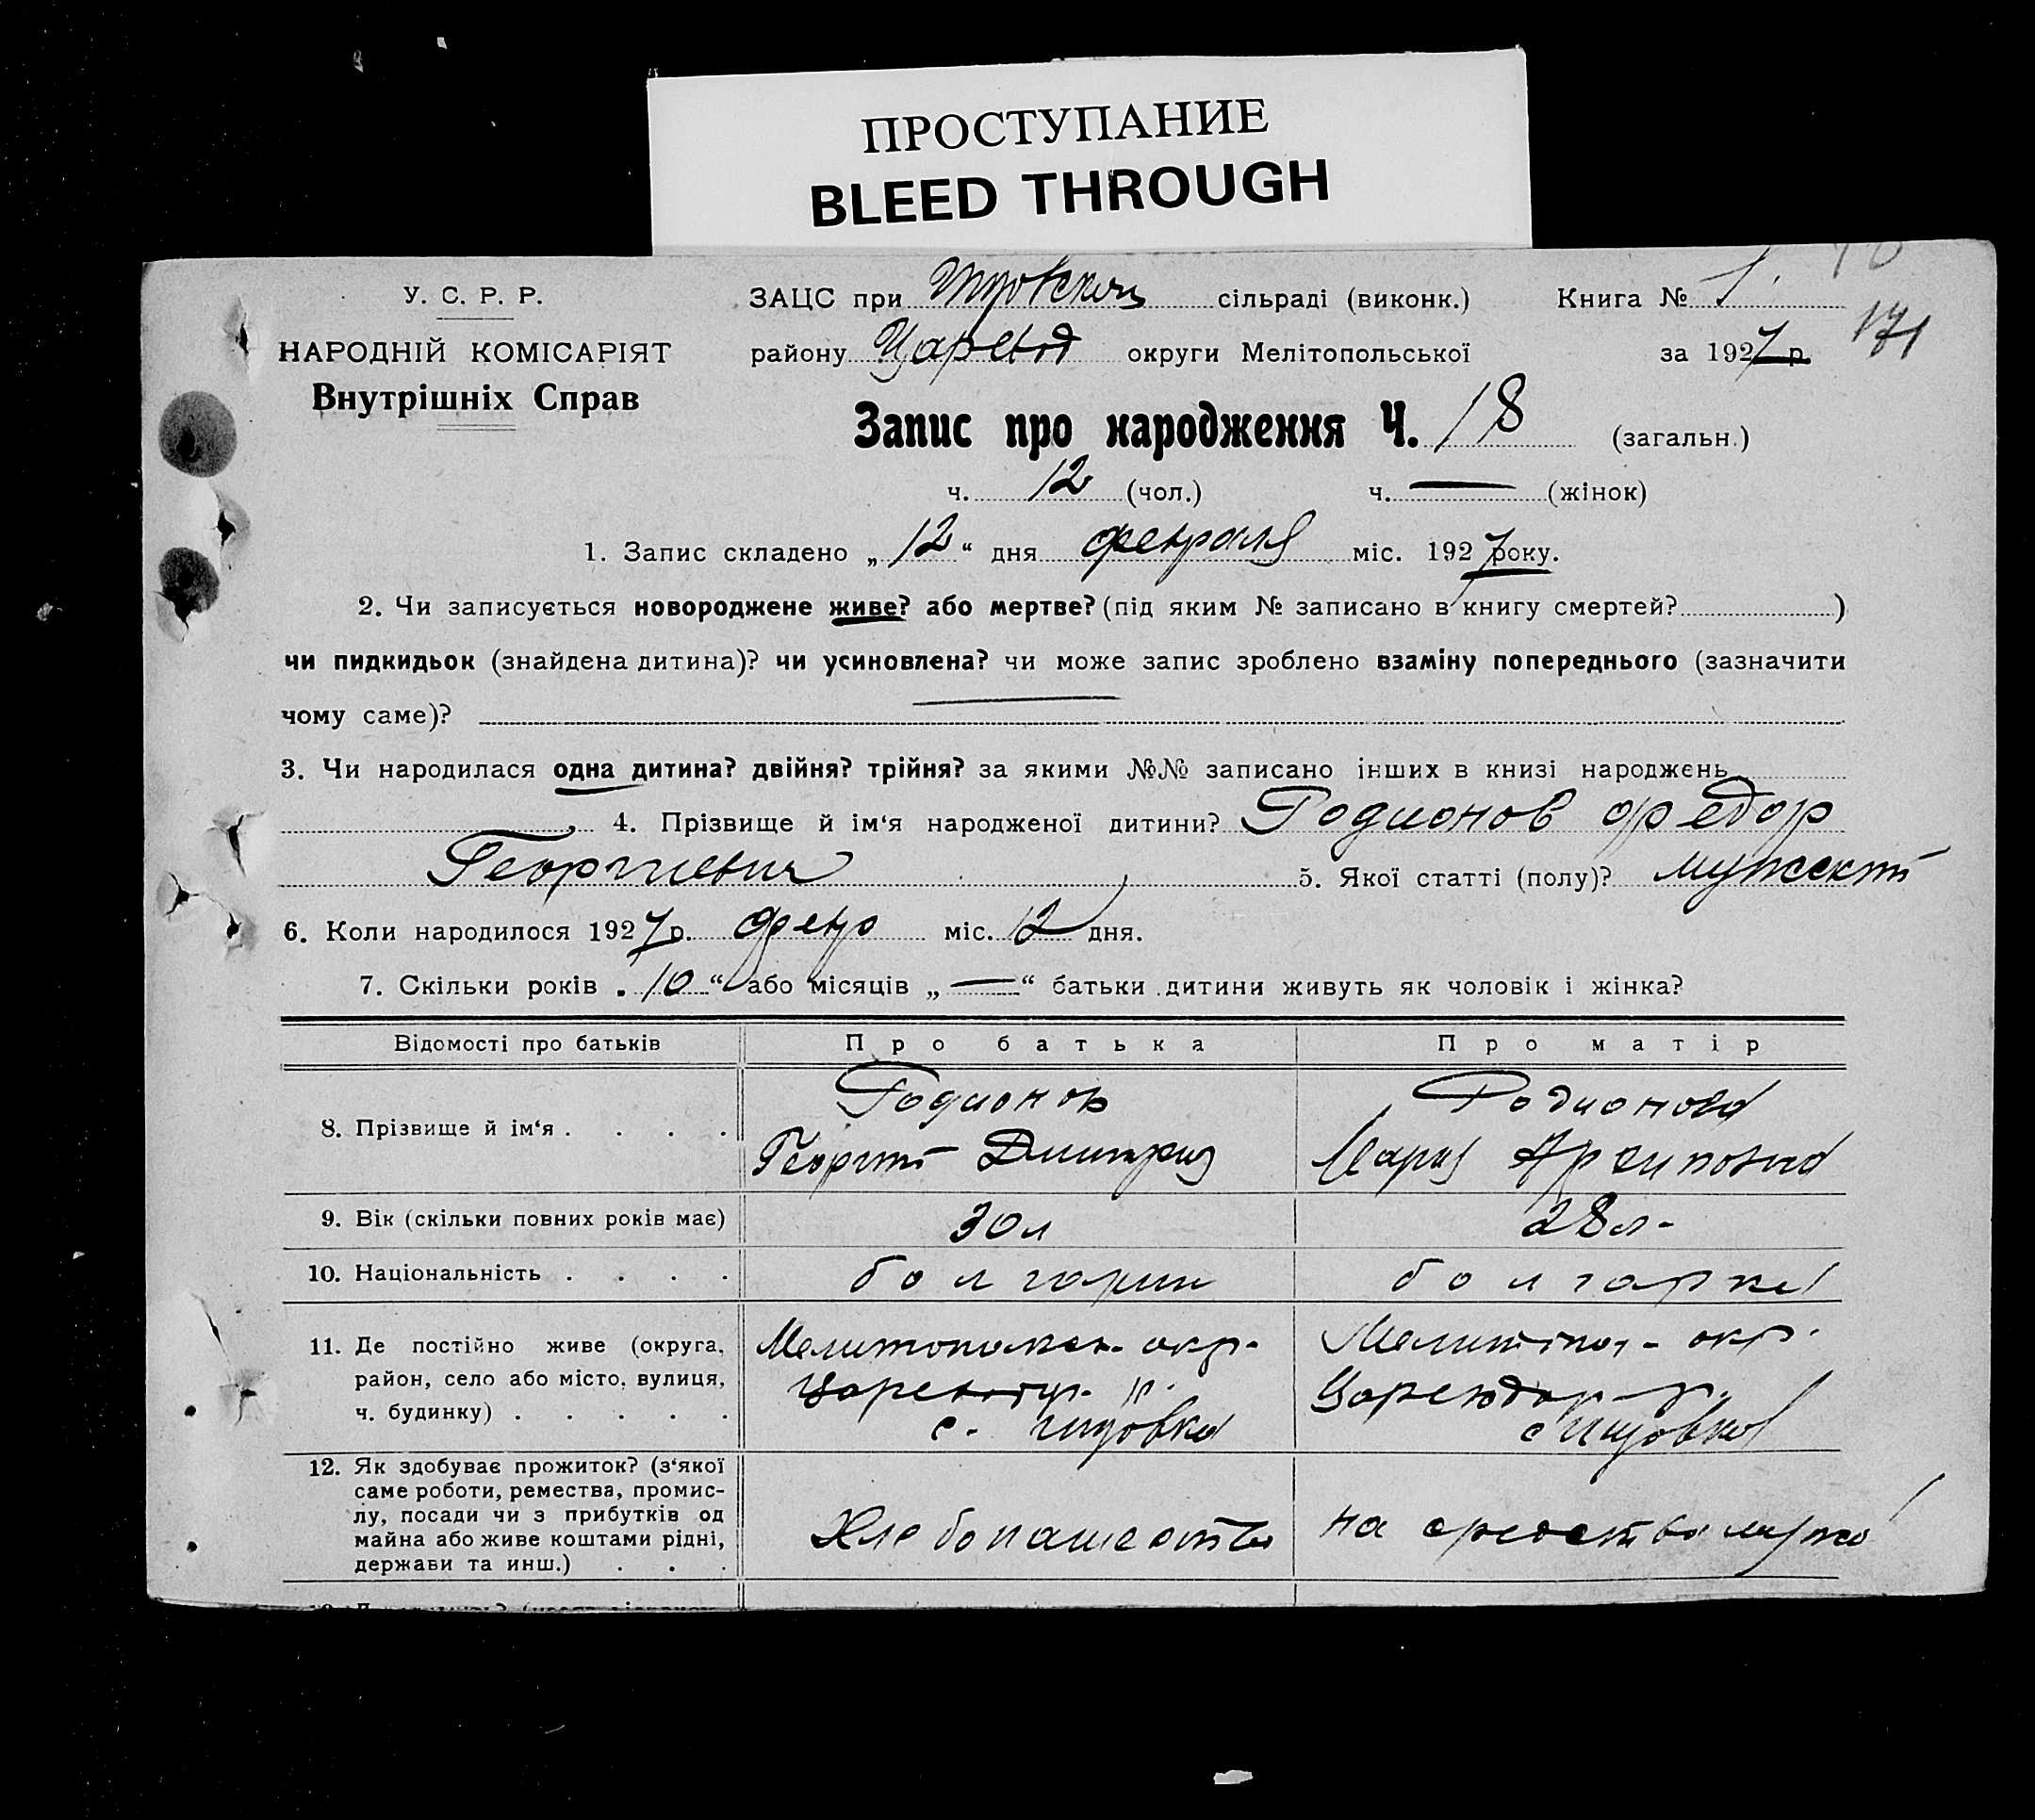 ПРОСТУПАНИЕ
BLEED THROUGH
У. С. Р. Р.
НАРОДНІЙ КОМІСАРІЯТ
Внутрішніх Справ
ЗАЦС при сільраді (виконк.) Книга № 1.
району округи Мелітопольської за 1927 р. 171
Запис про народження Ч. 18 (загальн.)
ч. 12 (чол.) ч. — (жінок)
1. Запис складено „12“ дня февраля міс. 1927 року.
2. Чи записується новороджене живе? або мертве? (під яким № записано в книгу смертей? )
чи пидкидьок (знайдена дитина)? чи усиновлена? чи може запис зроблено взаміну попереднього (зазначити
чому саме)? —
3. Чи народилася одна дитина? двійня? трійня? за якими №№ записано інших в книзі народжень
4. Прізвище й ім‘я народженої дитини? Родионов Федор
Георгиевич 5. Якої статті (полу)?
6. Коли народилося 1927 р. февр міс. 12 дня.
7. Скільки років „10“ або місяців „—“ батьки дитини живуть як чоловік і жінка?
Відомості про батьків Про батька Про матір
8. Прізвище й ім‘я . . . . Родионов Родионова
Георгий Дмитриев Мария Архиповна
9. Вік (скільки повних років має) 30 л 28 л-
10. Національність . . . . болгарин болгарка
11. Де постійно живе (округа, район, село або місто, вулиця, ч. будинку) . . . . .
окр. окр.
р. р.
с. с
12. Як здобуває прожиток? (з‘якої саме роботи, ремества, промислу, посади чи з прибутків од майна або живе коштами рідні, держави та инш.) . . . Хлебопашество на средства мужа